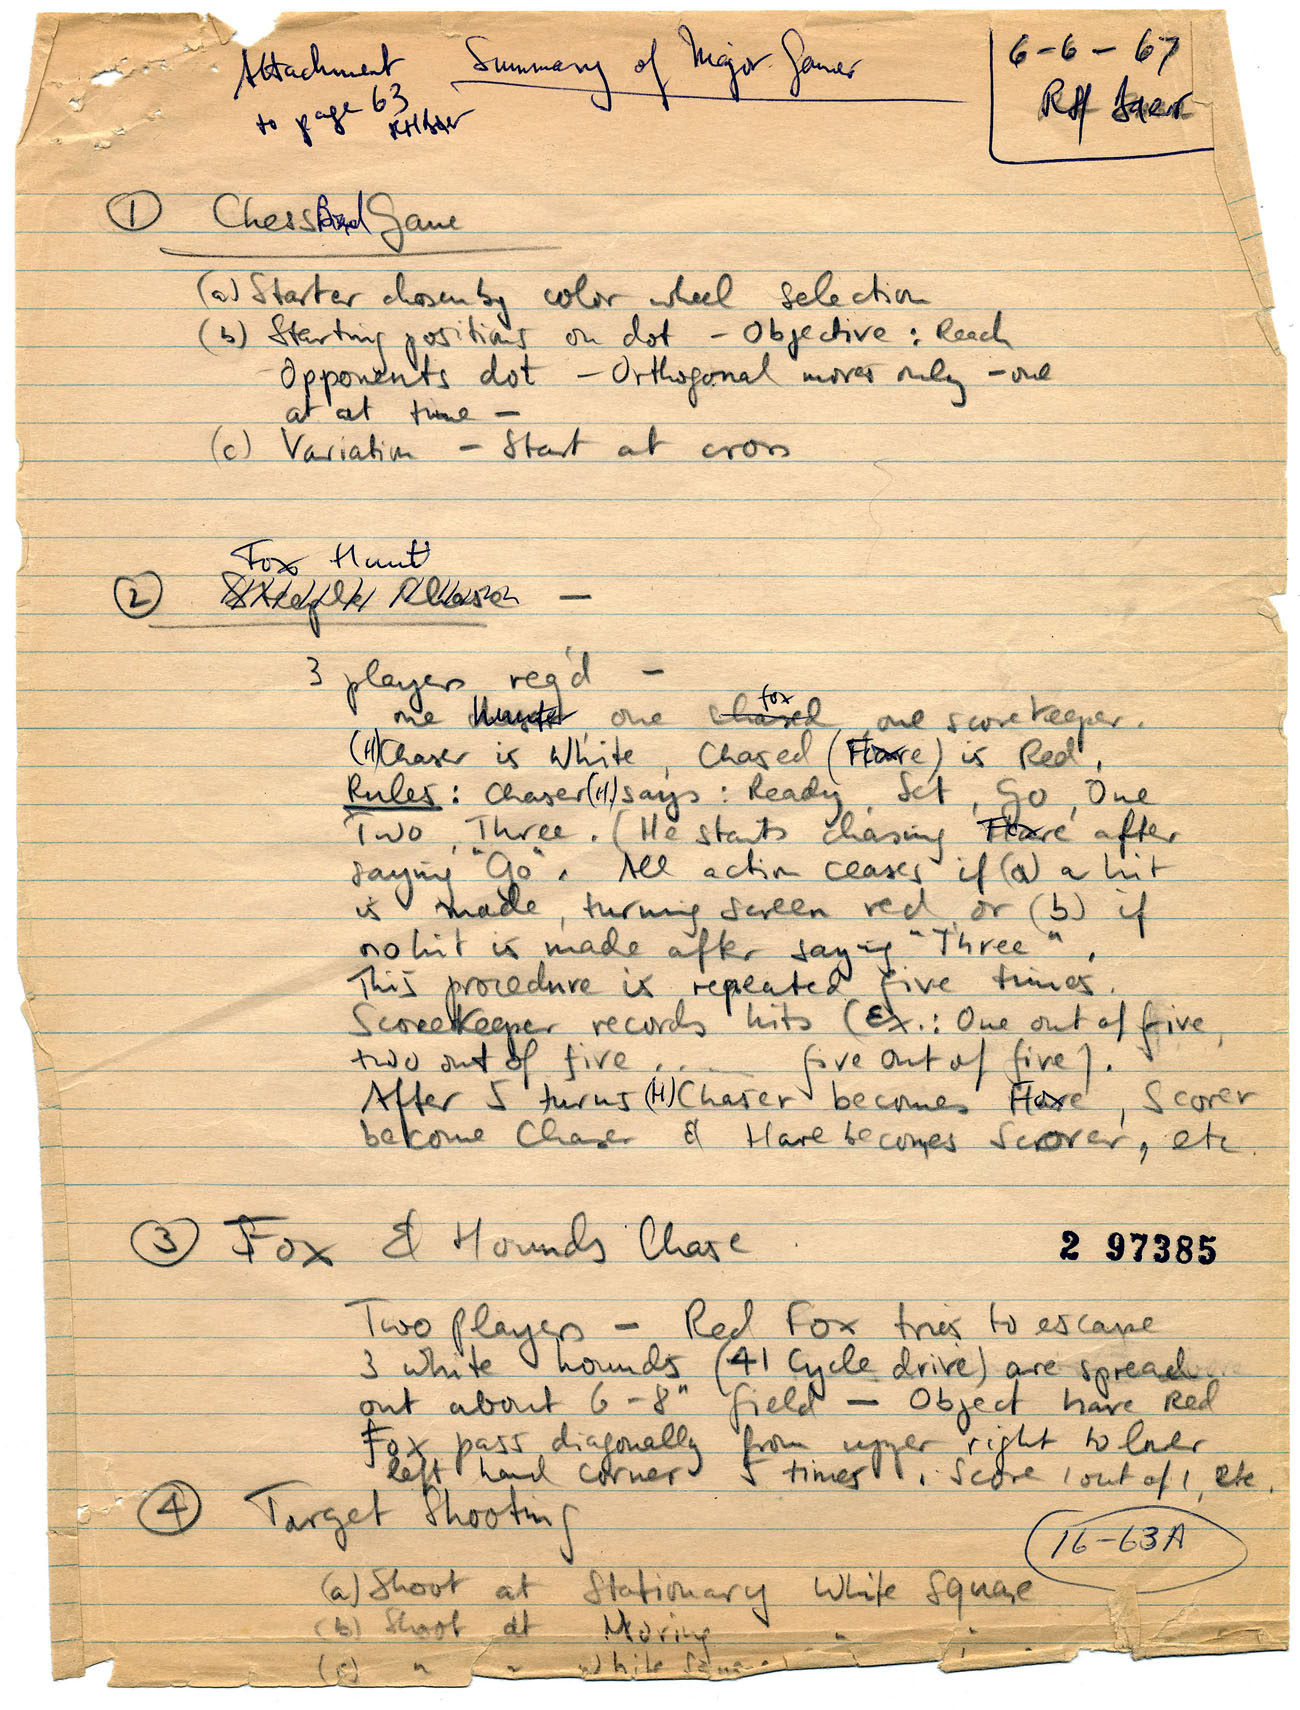 Attachment Summary of Major Games
to page 63
RHBaer
6-6-67
RH Baer
① Chess Bord Game
(a) Starter chosen by color wheel selection
(b) Starting positions on dot - Objective: Reach
Opponents dot - Orthogonal moves only - one
at at time -
(c) Variation - Start at cross
Fox Hunt
② Steeple Chase -
3 players req'd -
one Hunter, one chased fox, one scorekeeper.
(H) Chaser is White, Chased (Fox) is Red.
Rules: Chaser (H) says: Ready, Set, Go, One
Two, Three. (He starts chasing Fox after
saying "Go". All action ceases if (a) a hit
is made, turning screen red, or (b) if
no hit is made after saying "Three".
This procedure is repeated five times.
Scorekeeper records hits (Ex.: One out of five,
two out of five .... five out of five).
After 5 turns (H) Chaser becomes Fox, Scorer
become Chaser & Hare becomes Scorer, etc.
③ Fox & Hounds Chase
2 97385
Two Players - Red Fox tries to escape
3 white hounds (41 Cycle drive) are spread
out about 6-8" field - Object have Red
Fox pass diagonally from upper right to lower
left hand corner 5 times. Score 1 out of 1, etc.
④ Target Shooting
16-63A
(a) Shoot at Stationary White Square
(b) Shoot at Moving " "
(c) " " White Square